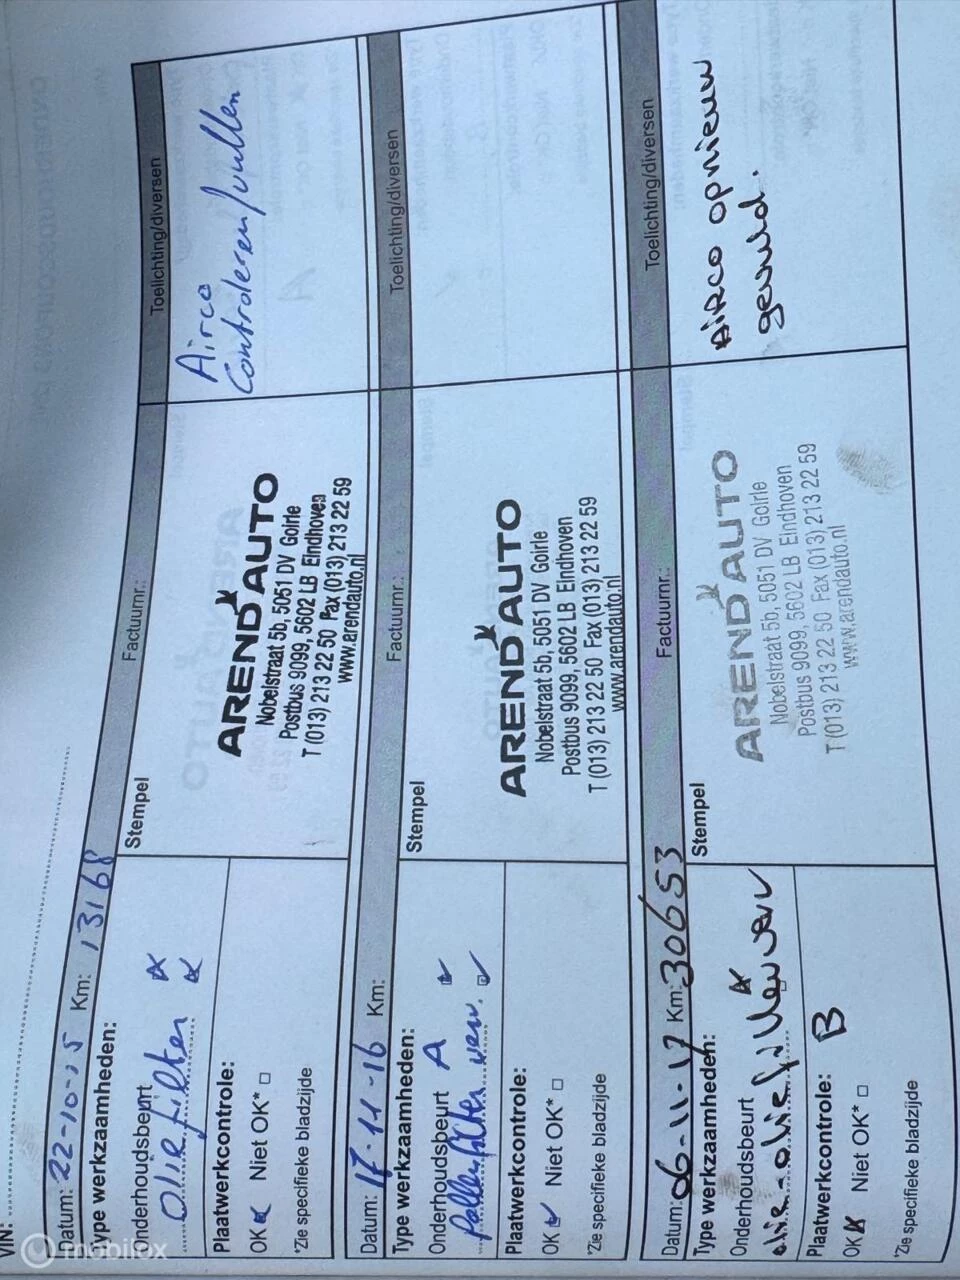 VIN:
Datum: 22-10-15 Km: 13168 Factuurnr.: Toelichting/diversen
Type werkzaamheden:
Onderhoudsbeurt
Oliefilter
Plaatwerkcontrole:
OK Niet OK*
*Zie specifieke bladzijde
Stempel
AREND AUTO
Nobelstraat 5b, 5051 DV Goirle
Postbus 9099, 5602 LB Eindhoven
T (013) 213 22 50 Fax (013) 213 22 59
www.arendauto.nl
Airco
Controleren/vullen
Datum: 17-11-16 Km: Factuurnr.: Toelichting/diversen
Type werkzaamheden:
Onderhoudsbeurt A
Pollenfilter verv.
Plaatwerkcontrole:
OK Niet OK*
*Zie specifieke bladzijde
Stempel
AREND AUTO
Nobelstraat 5b, 5051 DV Goirle
Postbus 9099, 5602 LB Eindhoven
T (013) 213 22 50 Fax (013) 213 22 59
www.arendauto.nl
Datum: 06-11-17 Km: 30653 Factuurnr.: Toelichting/diversen
Type werkzaamheden:
Onderhoudsbeurt
Plaatwerkcontrole: B
OK Niet OK*
*Zie specifieke bladzijde
Stempel
AREND AUTO
Nobelstraat 5b, 5051 DV Goirle
Postbus 9099, 5602 LB Eindhoven
T (013) 213 22 50 Fax (013) 213 22 59
www.arendauto.nl
Airco opnieuw
gevuld.
mobilox